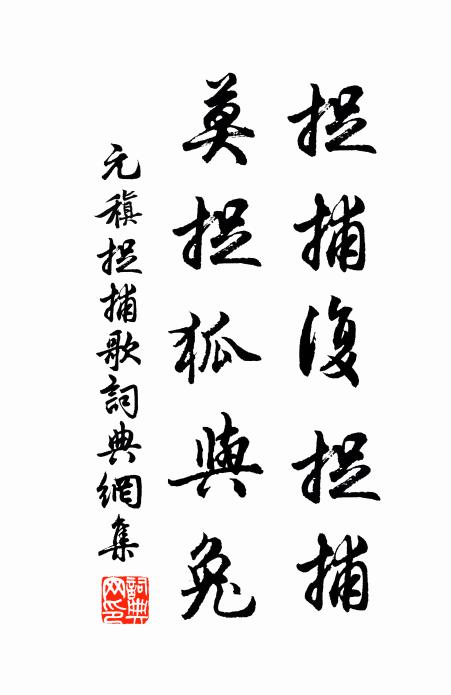 捉捕復捉捕
莫捉狐與兔
元稹捉捕歌詞典網集
詞典網印